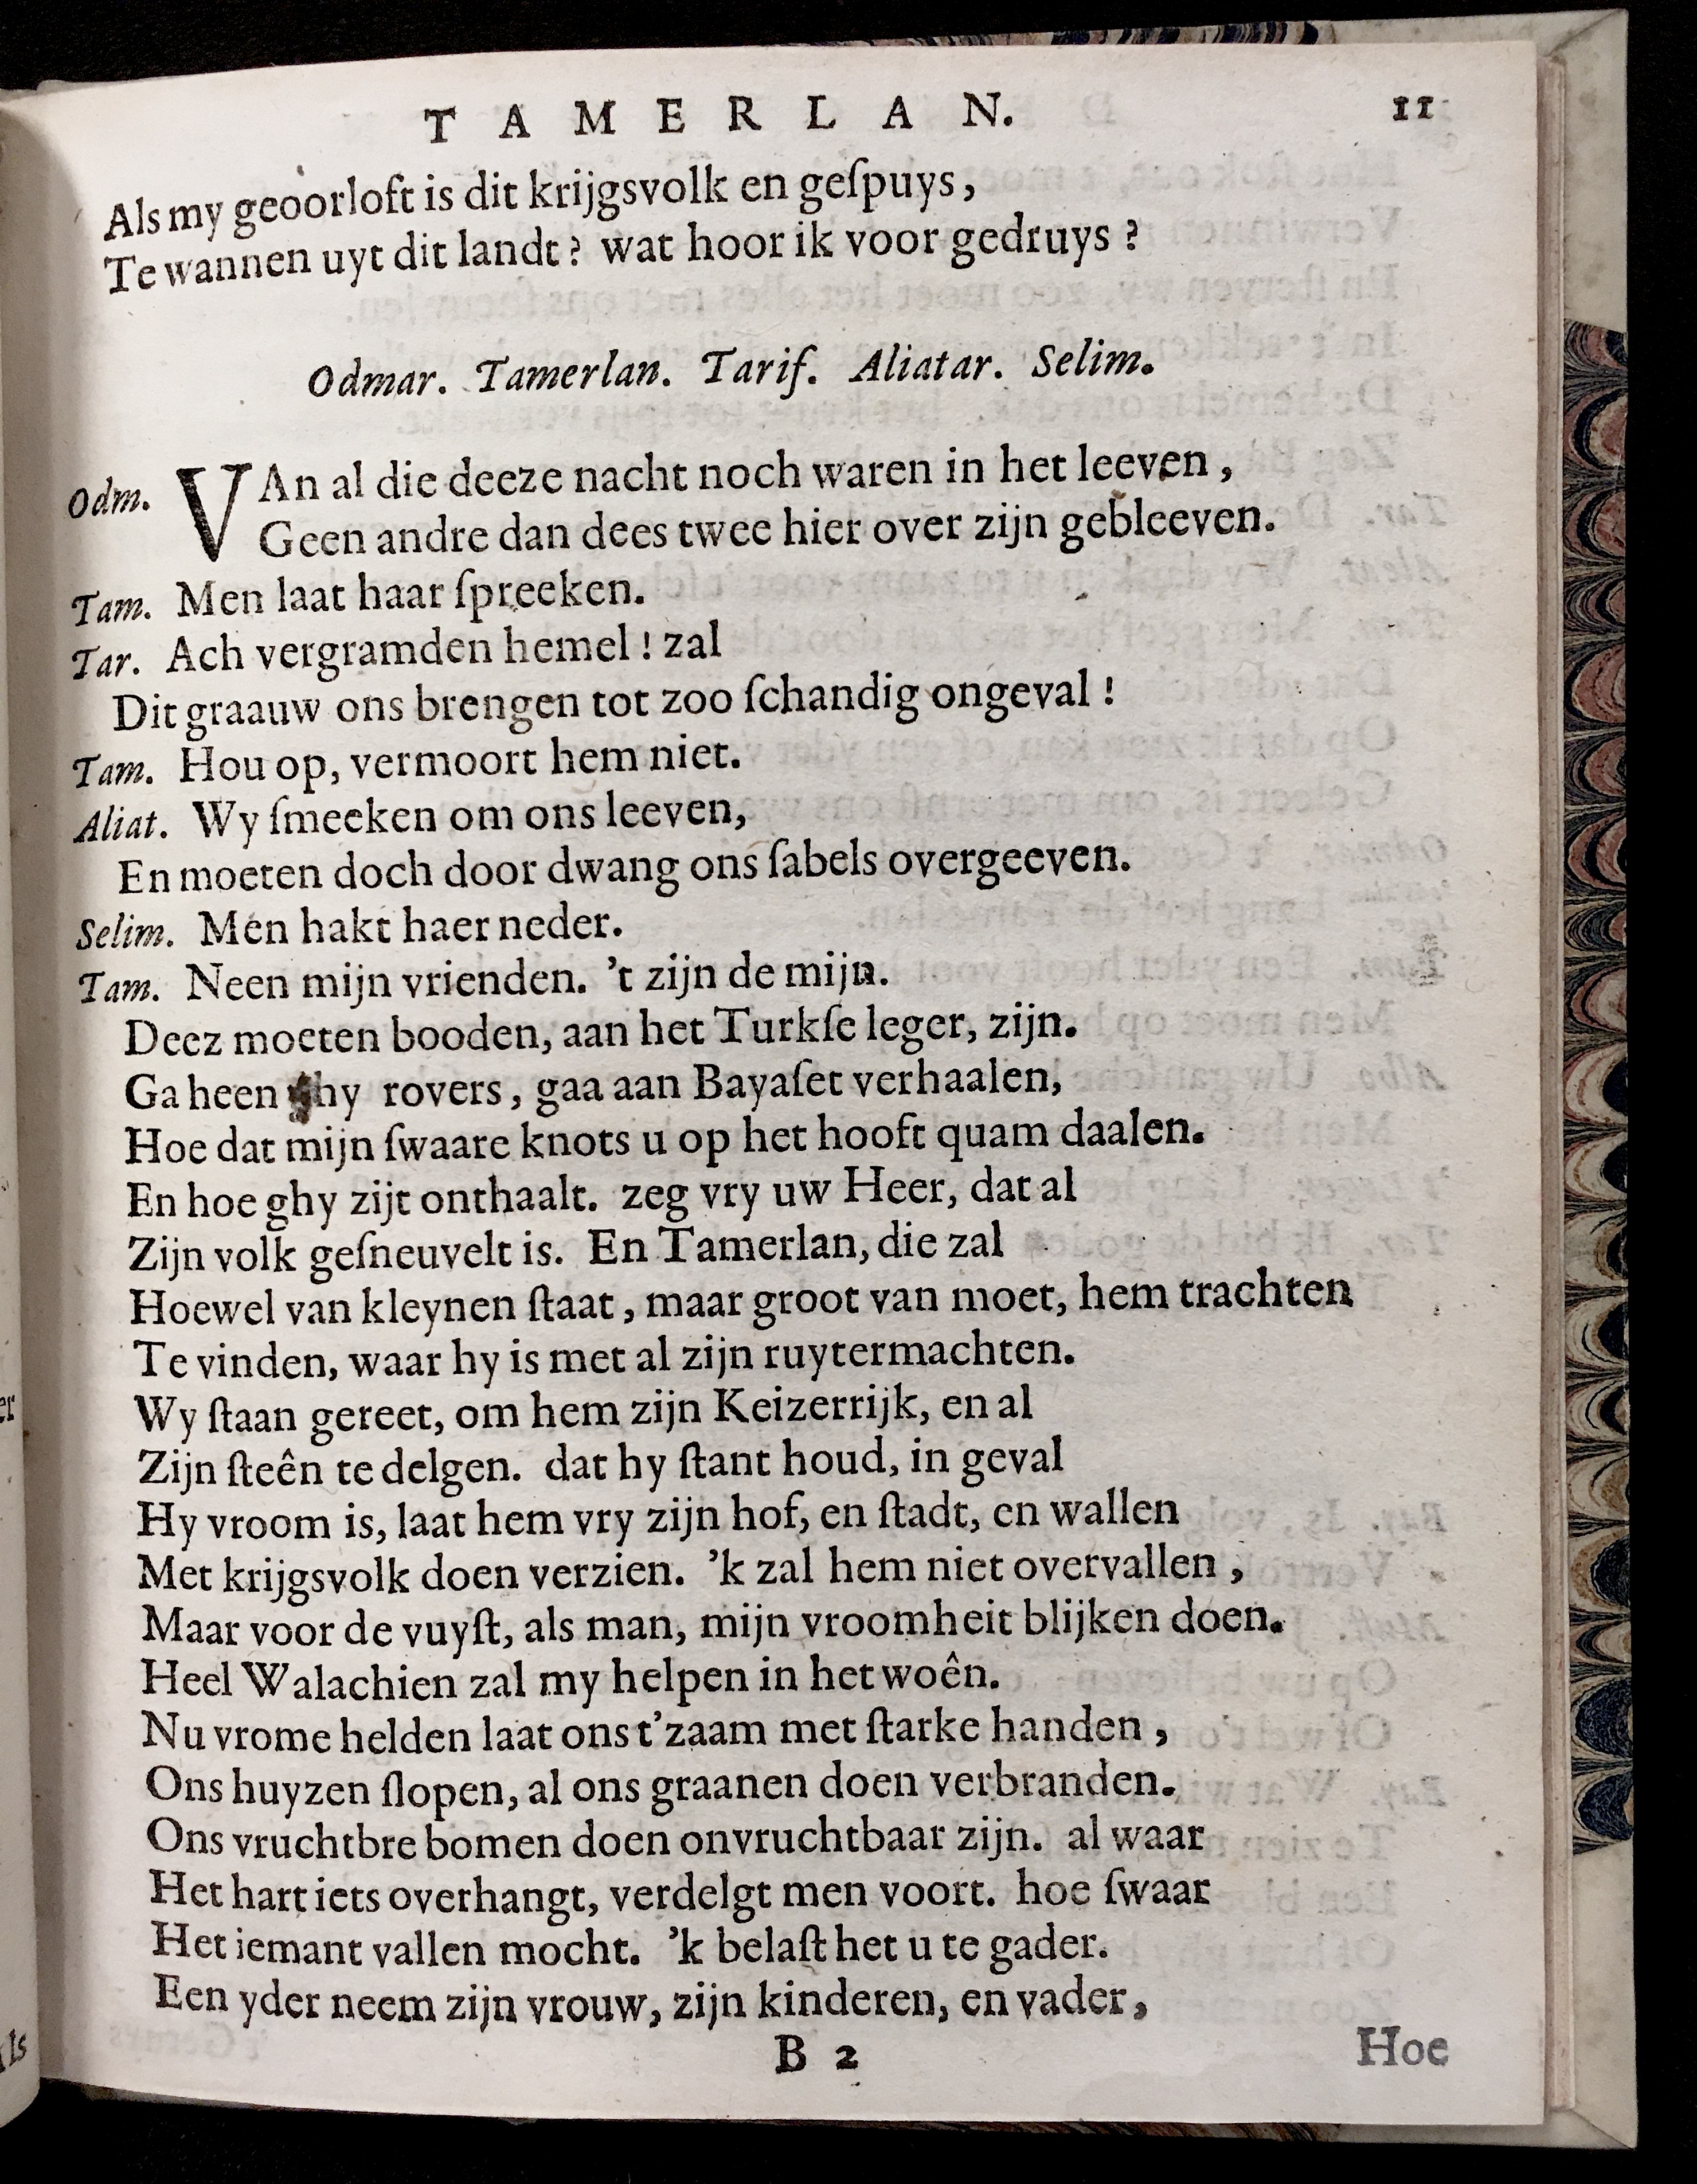 TAMERLAN. 11
Als my geoorloft is dit krijgsvolk en geſpuys,
Te wannen uyt dit landt? wat hoor ik voor gedruys?
Odmar. Tamerlan. Tarif. Aliatar. Selim.
Odm. VAn al die deeze nacht noch waren in het leeven,
Geen andre dan dees twee hier over zijn gebleeven.
Tam. Men laat haar ſpreeken.
Tar. Ach vergramden hemel! zal
Dit graauw ons brengen tot zoo ſchandig ongeval!
Tam. Hou op, vermoort hem niet.
Aliat. Wy ſmeeken om ons leeven,
En moeten doch door dwang ons ſabels overgeeven.
Selim. Men hakt haer neder.
Tam. Neen mijn vrienden. 't zijn de mijn.
Deez moeten booden, aan het Turkſe leger, zijn.
Ga heen ghy rovers, gaa aan Bayaſet verhaalen,
Hoe dat mijn ſwaare knots u op het hooft quam daalen.
En hoe ghy zijt onthaalt. zeg vry uw Heer, dat al
Zijn volk geſneuvelt is. En Tamerlan, die zal
Hoewel van kleynen ſtaat, maar groot van moet, hem trachten
Te vinden, waar hy is met al zijn ruytermachten.
Wy ſtaan gereet, om hem zijn Keizerrijk, en al
Zijn ſteên te delgen. dat hy ſtant houd, in geval
Hy vroom is, laat hem vry zijn hof, en ſtadt, en wallen
Met krijgsvolk doen verzien. 'k zal hem niet overvallen,
Maar voor de vuyſt, als man, mijn vroomheit blijken doen.
Heel Walachien zal my helpen in het woên.
Nu vrome helden laat ons t'zaam met ſtarke handen,
Ons huyzen ſlopen, al ons graanen doen verbranden.
Ons vruchtbre bomen doen onvruchtbaar zijn. al waar
Het hart iets overhangt, verdelgt men voort. hoe ſwaar
Het iemant vallen mocht. 'k belaſt het u te gader.
Een yder neem zijn vrouw, zijn kinderen, en vader,
B 2 Hoe